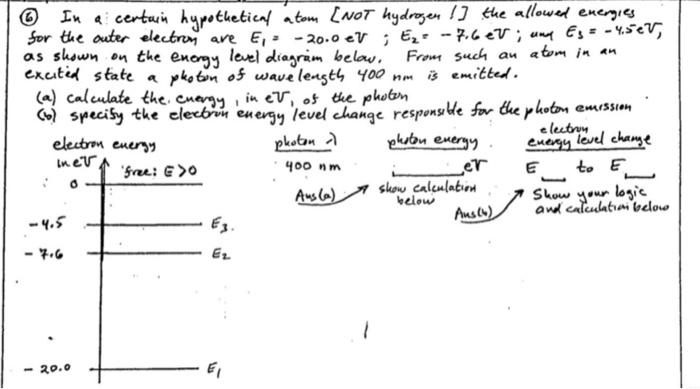 ⑥ In a certain hypothetical atom [NOT hydrogen!] the allowed energies
for the outer electron are E₁ = -20.0 eV ; E₂ = -7.6 eV ; and E₃ = -4.5 eV,
as shown on the energy level diagram below. From such an atom in an
excited state a photon of wavelength 400 nm is emitted.
(a) calculate the energy, in eV, of the photon
(b) specify the electron energy level change responsible for the photon emission
electron energy
in eV
free: E>0
0
-4.5 E₃
-7.6 E₂
-20.0 E₁
photon λ
400 nm
Ans(a)
photon energy
____ eV
show calculation
below
Ans(b)
electron
energy level change
E __ to E __
Show your logic
and calculation below